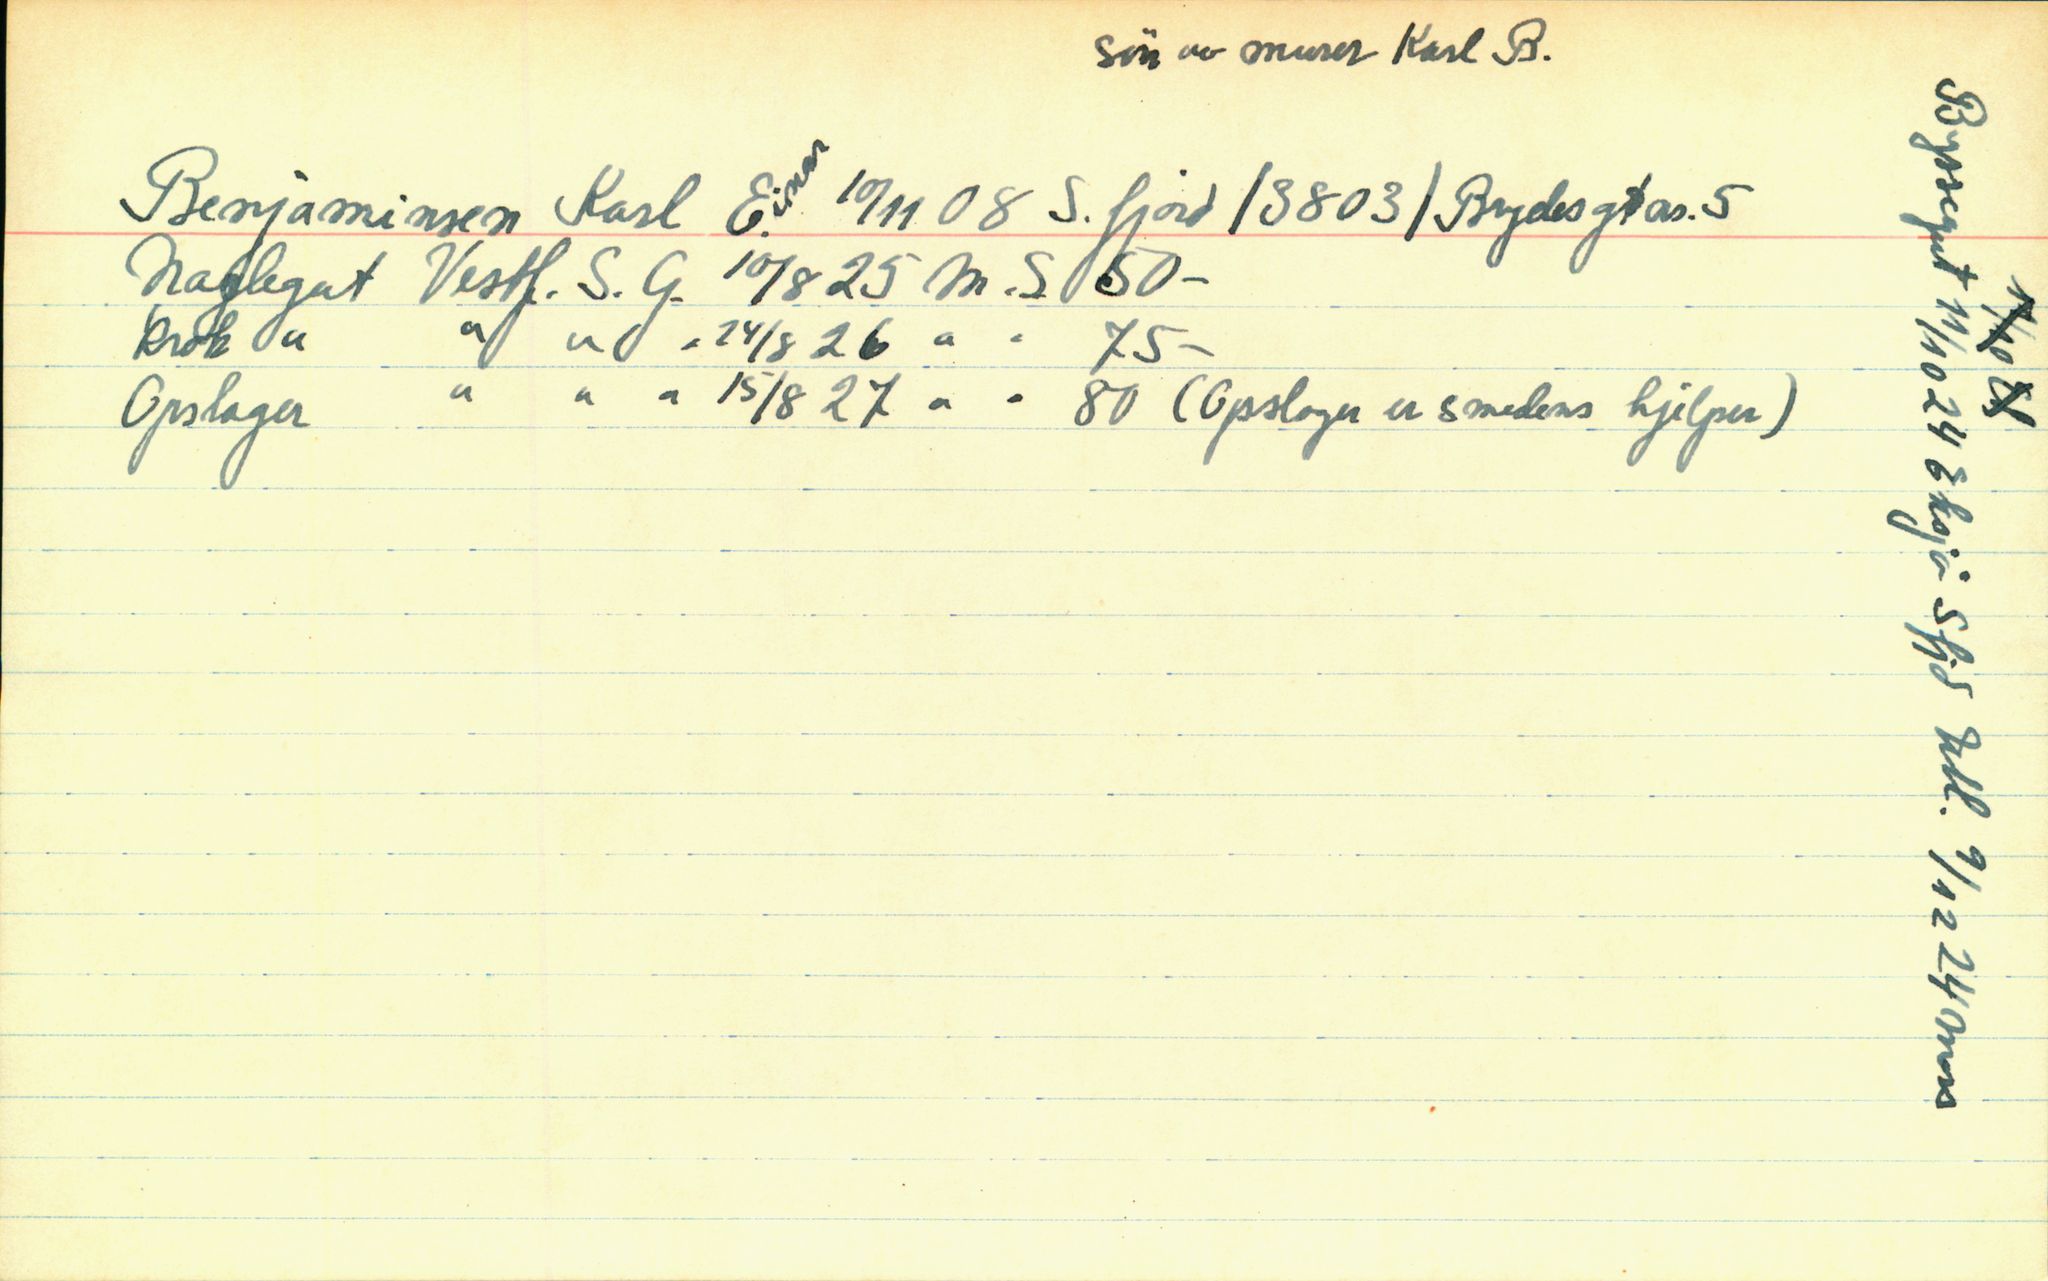 søn av murer Karl B.
Benjaminsen Karl Einar 10/11 08 S. fjord /3803/ Brydesgt 5
Naglegut Vestf. S. G. 10/8 25 M.S 50-
Krok " " " " 24/8 26 " " 75-
Opslager " " " 15/8 27 " " 80 (Opslager er smedens hjelper)
Byssegut 11/10 24 Sfjd 9/12 24